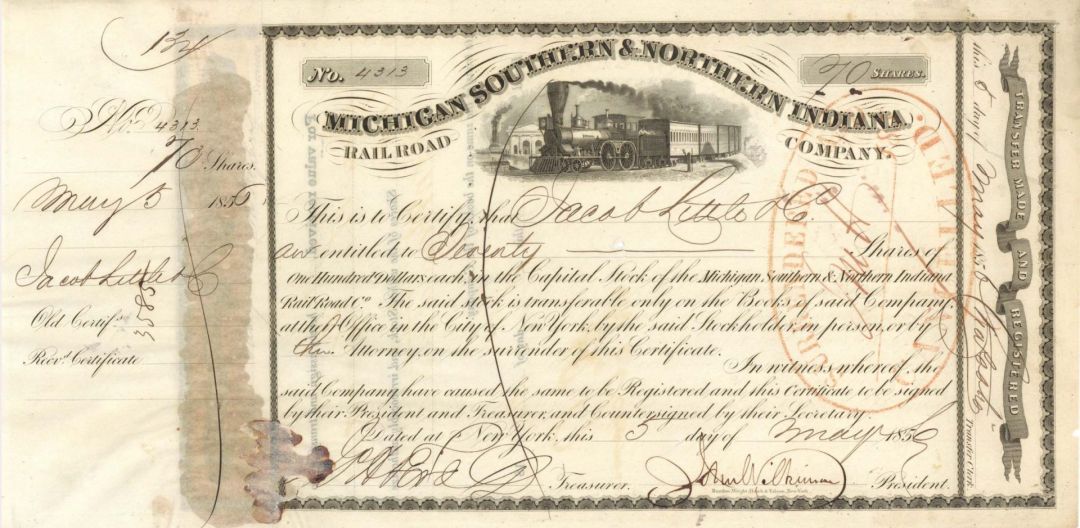 134
No. 4313
70 Shares.
May 5 1856
Jacob Little & Co
Old Certifs
3585
Recd. Certificate
No. 4313
70 SHARES.
MICHIGAN SOUTHERN & NORTHERN INDIANA
RAIL ROAD COMPANY.
This is to Certify, that Jacob Little & Co.
are entitled to Seventy Shares of
One Hundred Dollars each, in the Capital Stock of the Michigan Southern & Northern Indiana
Rail Road Co. The said stock is transferable only on the Books of said Company,
at their Office in the City of New York, by the said Stockholder, in person, or by
their Attorney, on the surrender of this Certificate.
In witness whereof, the
said Company have caused the same to be Registered and this Certificate to be signed
by their President and Treasurer, and Countersigned by their Secretary.
Dated at New York, this 5 day of May 1856
Treasurer. John Wilkinson President.
SURRENDERED
CANCELLED.
TRANSFER MADE AND REGISTERED
this 5 day of May 1856
Transfer Clerk